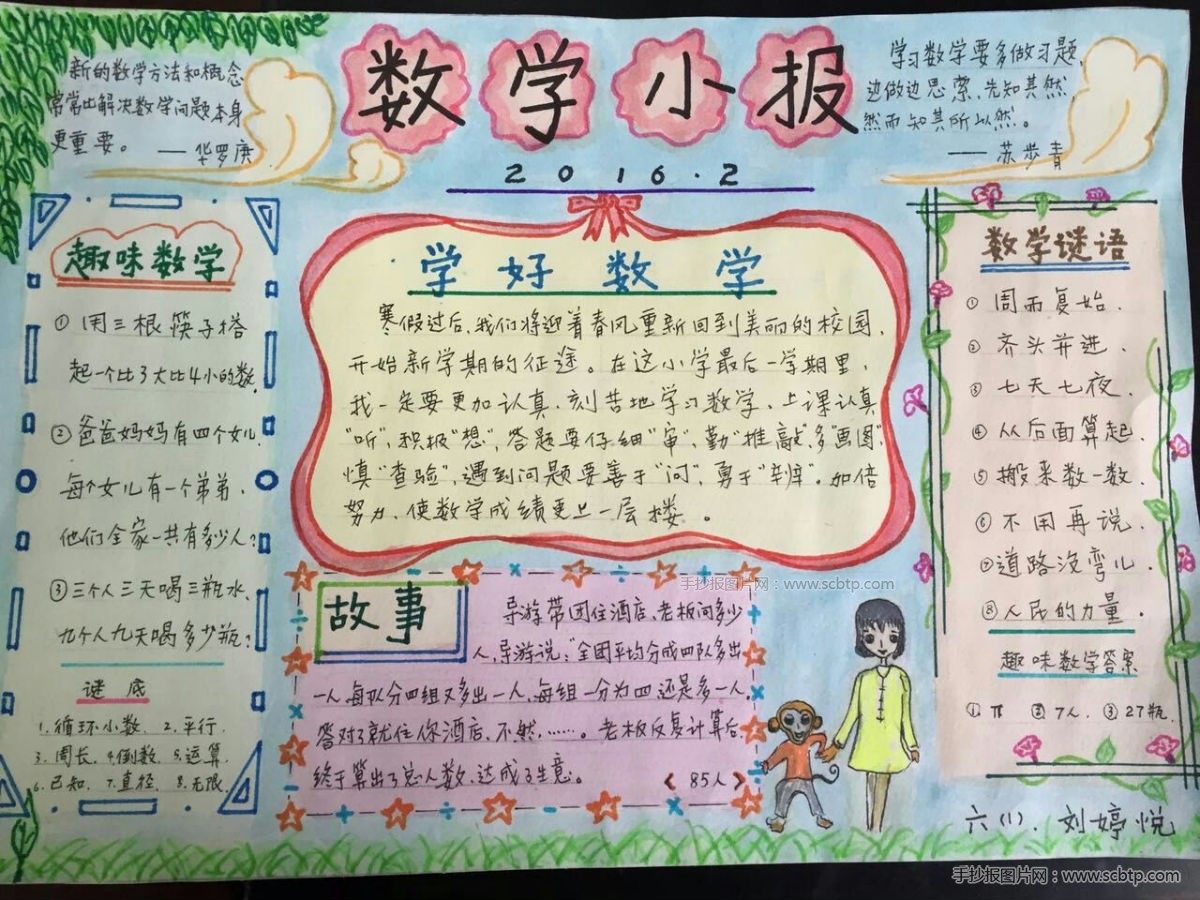 数学小报
2016.2
新的数学方法和概念
常常比解决数学问题本身
更重要。 ——华罗庚
学习数学要多做习题,
边做边思索,先知其然,
然而知其所以然。
——苏步青
趣味数学
① 用三根筷子搭
起一个比3大比4小的数.
② 爸爸妈妈有四个女儿,
每个女儿有一个弟弟,
他们全家一共有多少人?
③ 三个人三天喝三瓶水,
九个人九天喝多少瓶?
谜底
1.循环小数. 2.平行.
3.周长. 4.倒数. 5.运算.
6.已知. 7.直径. 8.无限.
学好数学
寒假过后,我们将迎着春风重新回到美丽的校园,
开始新学期的征途。在这小学最后一学期里,
我一定要更加认真、刻苦地学习数学,上课认真
"听",积极"想",答题要仔细"审",勤"推敲",多"画图"
慎"查验",遇到问题要善于"问",勇于"辩"。加倍
努力,使数学成绩更上一层楼。
故事
导游带团住酒店,老板问多少
人,导游说:"全团平均分成四队多出
一人,每队分四组又多出一人,每组一分为四还是多一人.
答对了就住你酒店,不然,……。老板反复计算后,
终于算出了总人数,达成了生意。
《 85人 》
手抄报图片网:www.scbtp.com
数学谜语
① 周而复始.
② 齐头并进.
③ 七天七夜.
④ 从后面算起.
⑤ 搬来数一数.
⑥ 不用再说.
⑦ 道路没弯儿.
⑧ 人民的力量.
趣味数学答案
①. π ②. 7人. ③ 27瓶.
六(1). 刘婷悦
手抄报图片网:www.scbtp.com